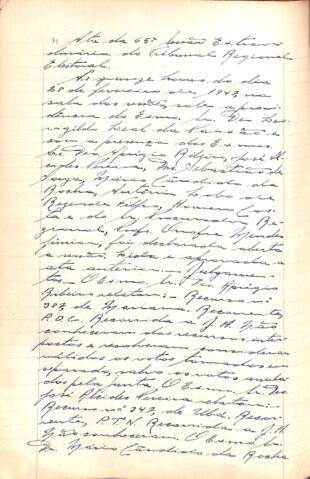 Ata da 65ª Sessão Extraor-
dinária do Tribunal Regional
Eleitoral.
Às quinze horas do dia
28 de fevereiro de 1947, na
sala das sessões, sob a presi-
dência do Exmo. Sr. Des. Leo-
vigildo Leal da Paixão e
com a presença dos Exmos.
Srs. Des. Aprigio Ribeiro, José Al-
cides Pereira, Drs. Sebastião de
Souza, Márcio Cândido da
Rocha, Antônio Lobo de
Rezende Filho,
e do Sr. Procurador Re-
gional, Prof. Onofre Mendes
Júnior, foi declarada aberta
a sessão. Lida e aprovada a
ata anterior. — Julgamen-
tos — O Exmo. Sr. Des. Aprigio
Ribeiro relatou: — Recurso nº
de Mariana. Recorrente,
Recorrida a J. A. Não
conheceram dos recursos inter-
postos e resolveram considerar
válidos os votos tomados em
separado, salvo os votos anula-
dos pela junta. O Exmo. Sr. Des.
José Alcides Pereira relatou:
Recurso nº 342, de Ubá. Recor-
rente, P.T.N. Recorrida, a J. A.
Não conheceram. O Exmo. Sr.
Dr. Márcio Cândido da Rocha